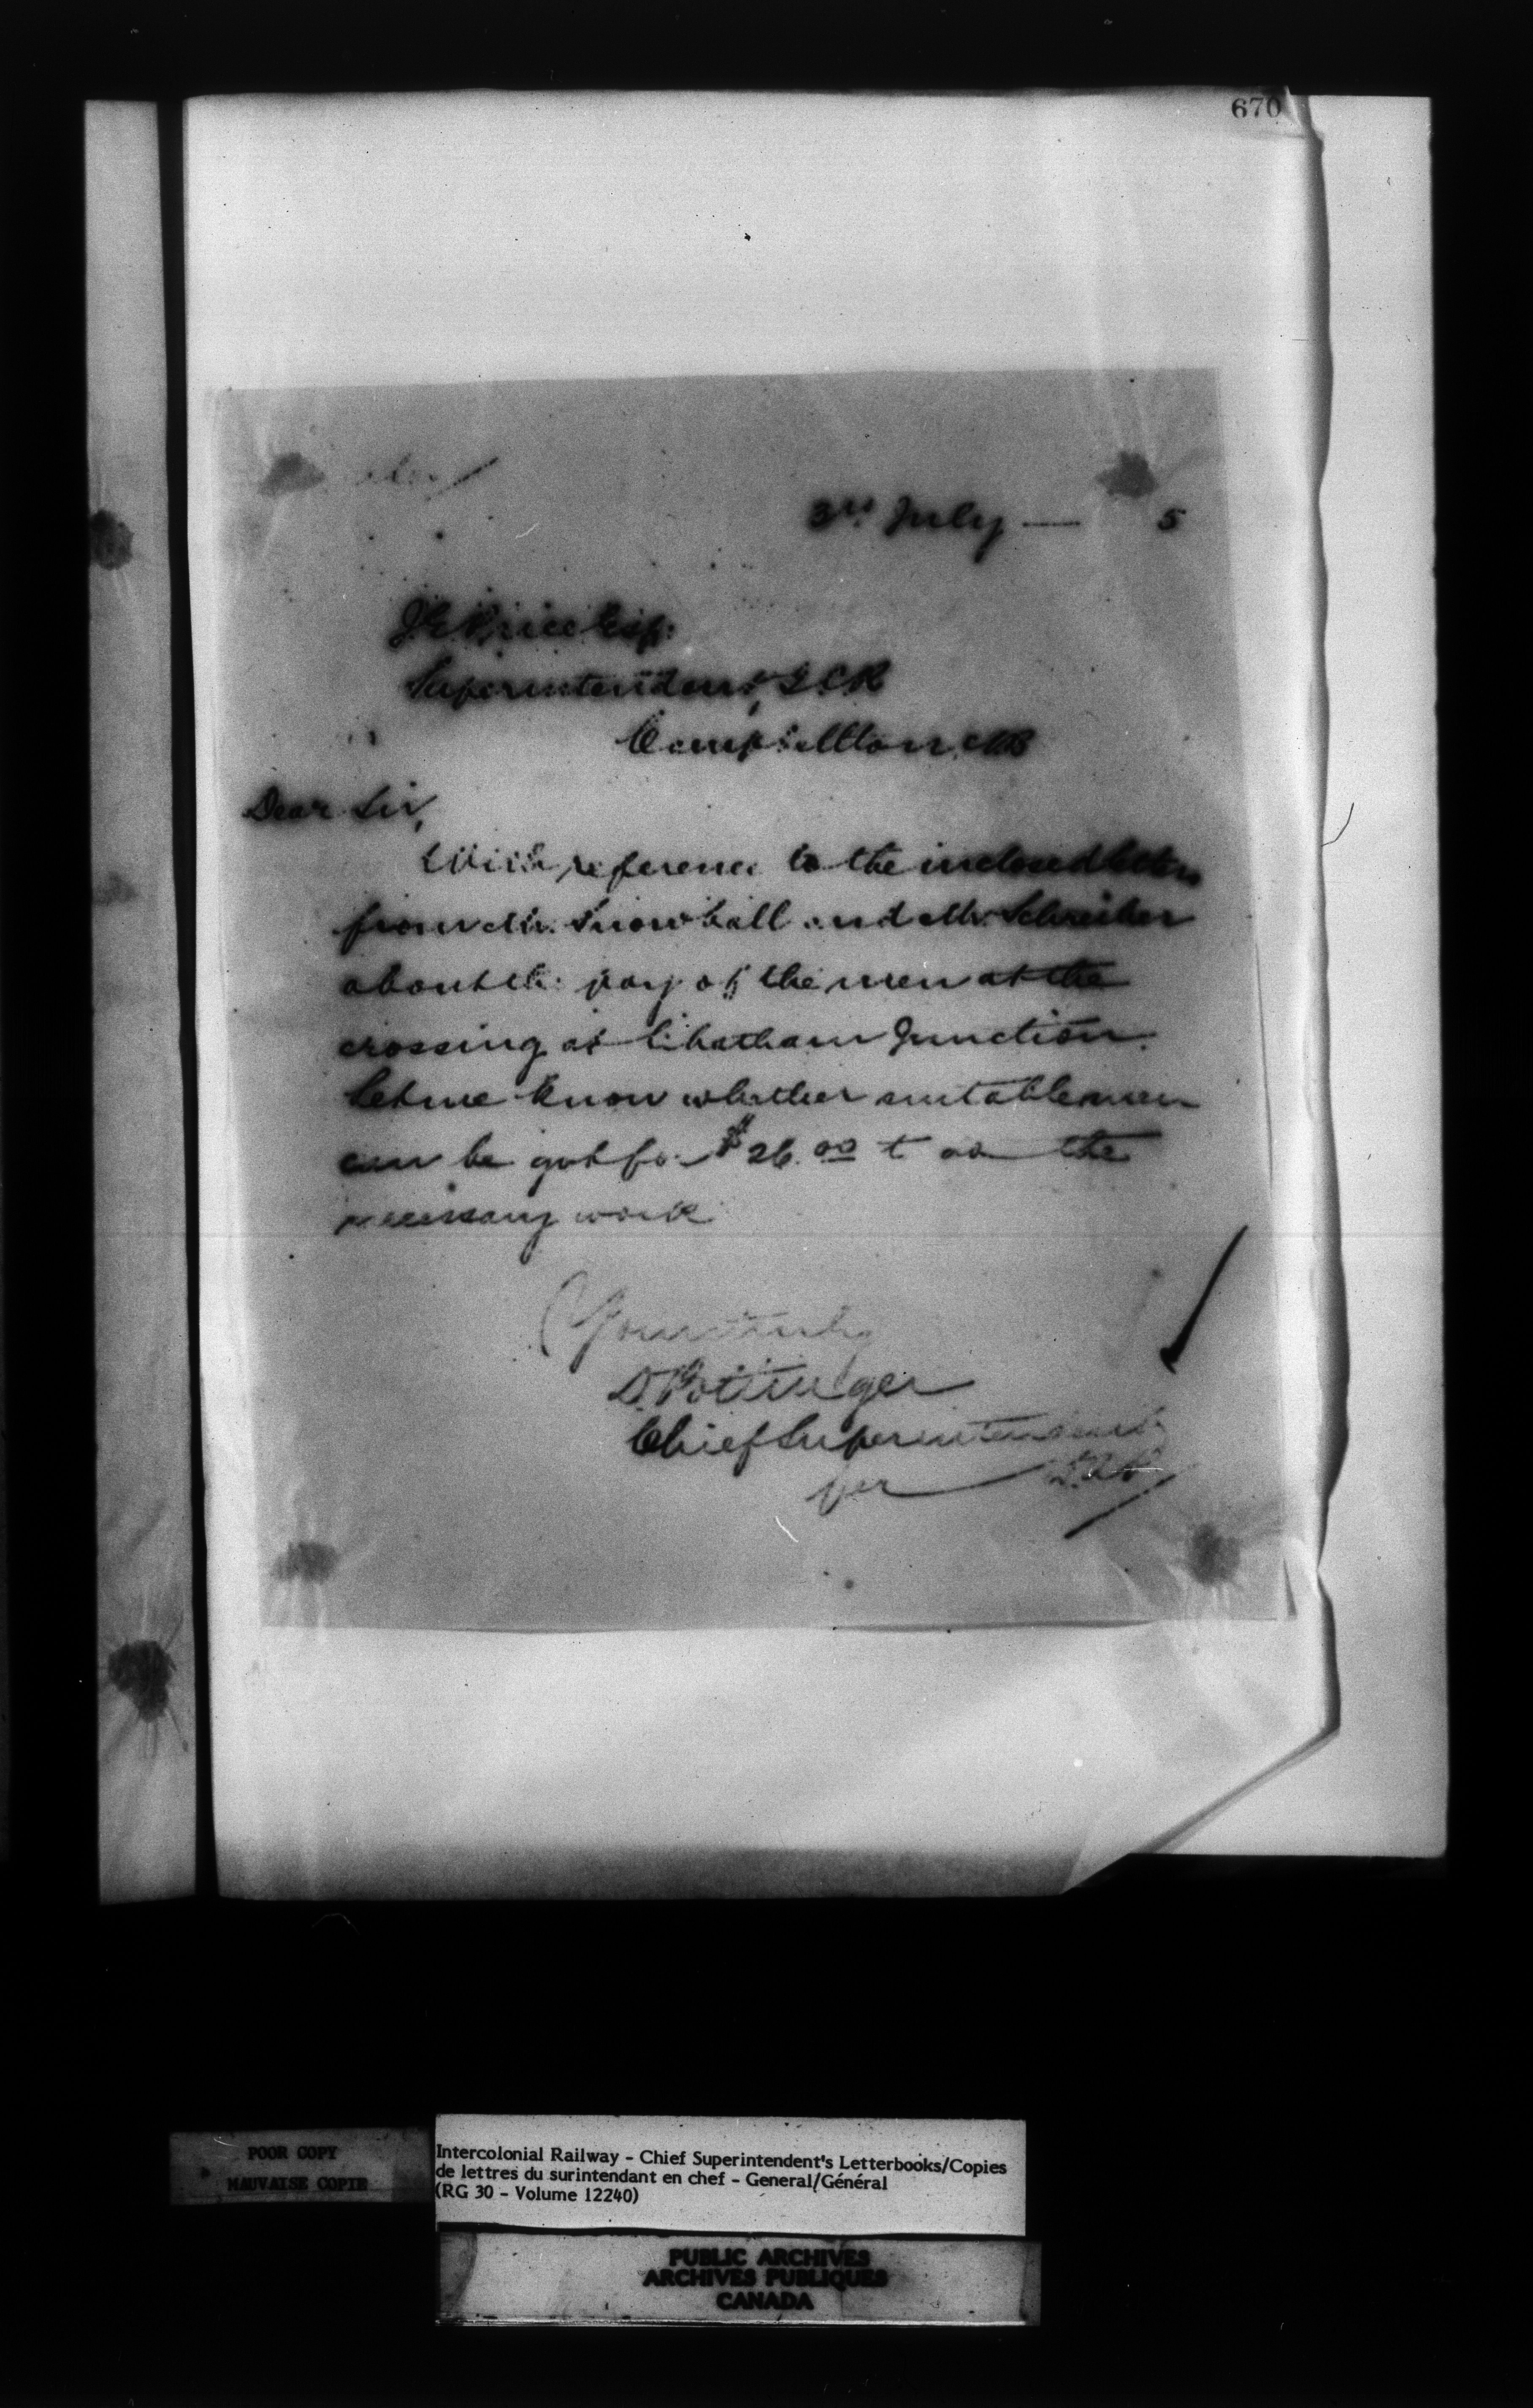 670
3rd July — 5
J E Price Esq:
Superintendent, I.C.R
Campbellton, NB
Dear Sir,
With reference to the inclosed letters
from Mr. Snowball and Mr. Schreiber
about the pay of the men at the
crossing at Chatham Junction.
Let me know whether suitable men
can be got for $26.00 t do the
necessary work
Yours truly
D. Pottinger
Chief Superintendent
per
POOR COPY
MAUVAISE COPIE
Intercolonial Railway - Chief Superintendent's Letterbooks/Copies
de lettres du surintendant en chef - General/Général
(RG 30 - Volume 12240)
PUBLIC ARCHIVES
ARCHIVES PUBLIQUES
CANADA